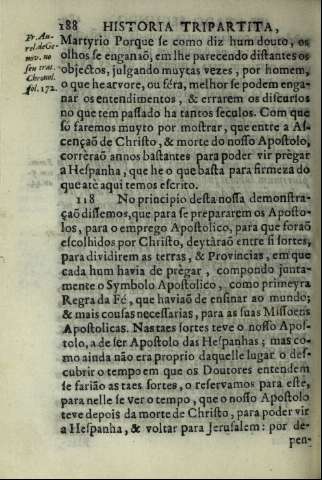 188 HISTORIA TRIPARTITA,
Fr. An-
rel. de Ge-
nov. no
seu trat.
Chronol.
fol. 172.
Martyrio Porque se como diz hum douto, os
olhos se enganaõ, em lhe parecendo distantes os
objectos, julgando muytas vezes, por homem,
o que he arvore, ou féra, melhor se podem enga-
nar os entendimentos, & errarem os discursos
no que tem passado ha tantos seculos. Com que
só faremos muyto por mostrar, que entre a As-
cençaõ de Christo, & morte do nosso Apostolo,
correraõ annos bastantes para poder vir prègar
a Hespanha, que he o que basta para firmeza do
que atè aqui temos escrito.
118 No principio desta nossa demonstra-
çaõ dissemos, que para se prepararem os Aposto-
los, para o emprego Apostolico, para que foraõ
escolhidos por Christo, deytàraõ entre si sortes,
para dividirem as terras, & Provincias, em que
cada hum havia de prègar, compondo junta-
mente o Symbolo Apostolico, como primeyra
Regra da Fé, que haviaõ de ensinar ao mundo;
& mais cousas necessarias, para as suas Missoens
Apostolicas. Nas taes sortes teve o nosso Apos-
tolo, a de ser Apostolo das Hespanhas; mas co-
mo ainda não era proprio daquelle lugar o des-
cubrir o tempo em que os Doutores entendem
se farião as taes sortes, o reservamos para este,
para nelle se ver o tempo, que o nosso Apostolo
teve depois da morte de Christo, para poder vir
a Hespanha, & voltar para Jerusalem: por de-
pen-